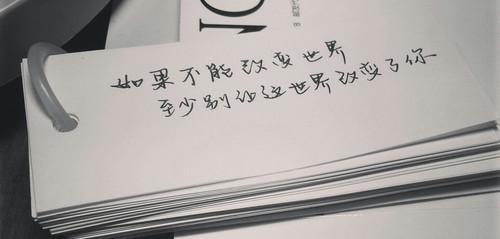 如果不能改变世界
至少别让这世界改变了你